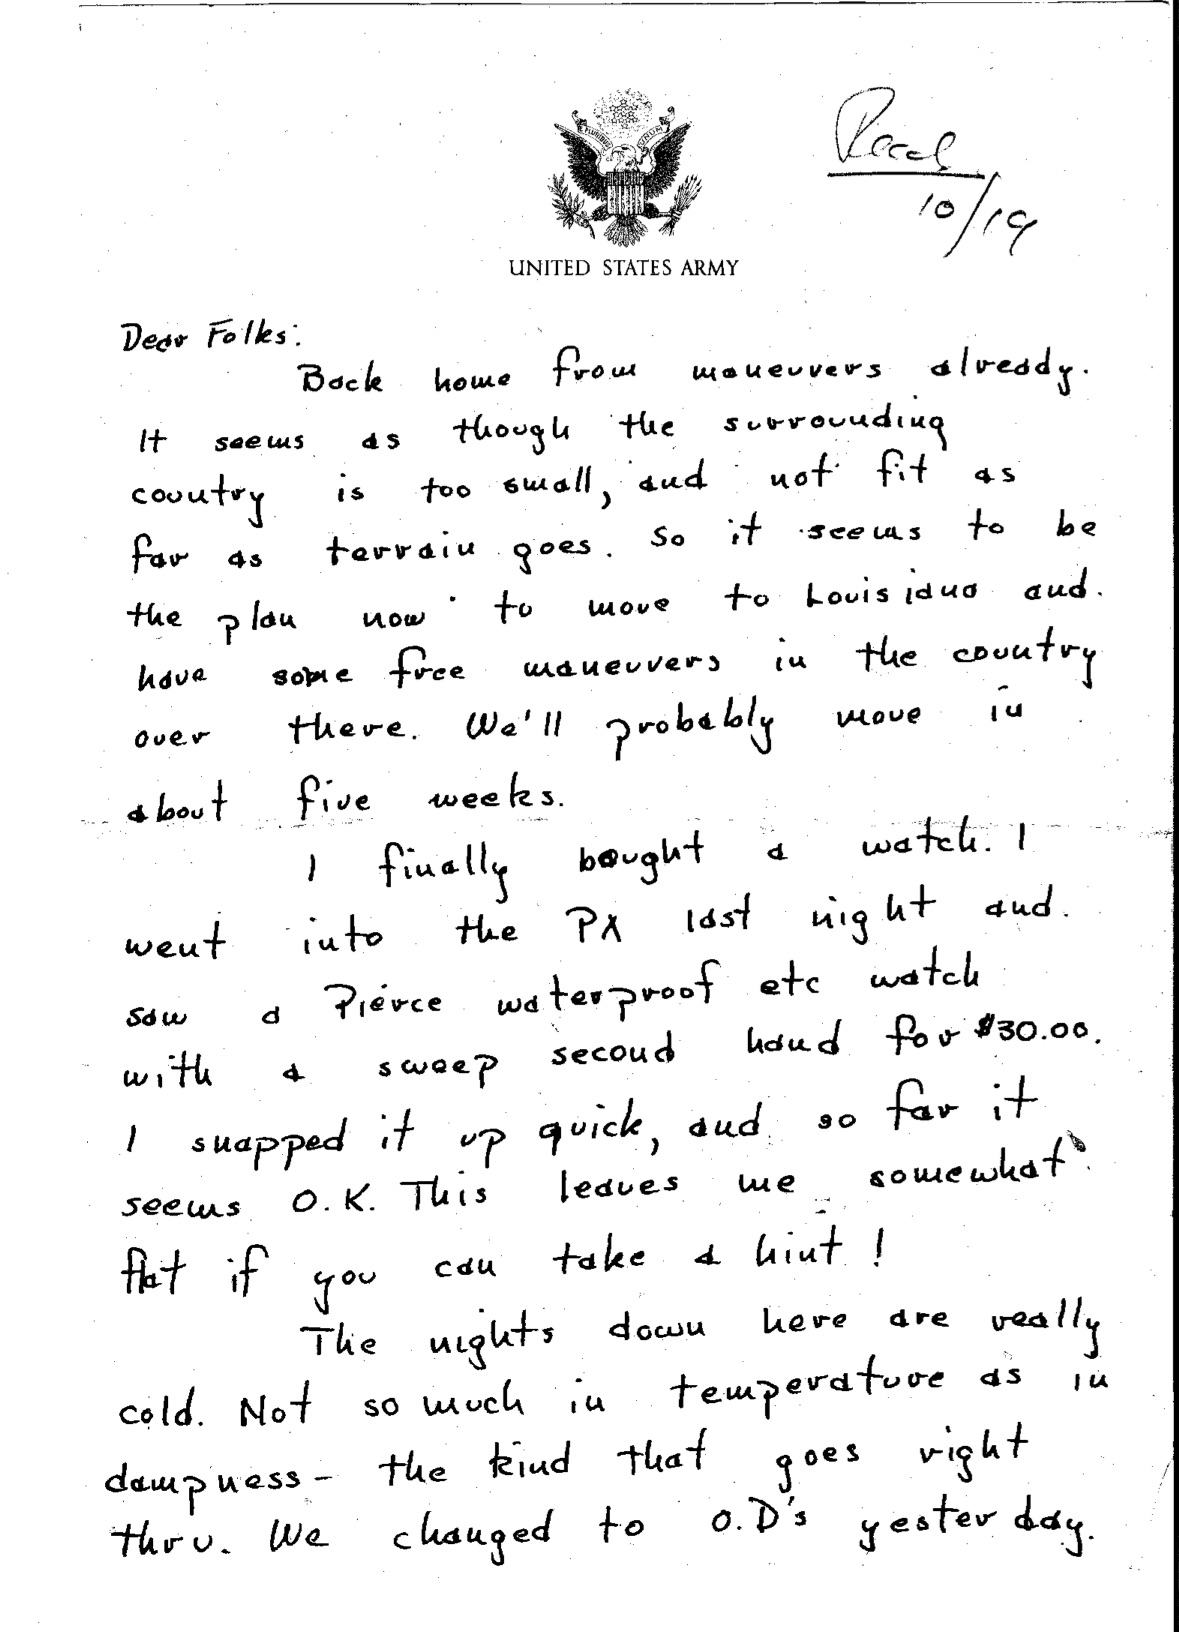 Recd
10/19
E PLURIBUS UNUM
UNITED STATES ARMY
Dear Folks:
Back home from maneuvers already.
It seems as though the surrounding
country is too small, and not fit as
far as terrain goes. So it seems to be
the plan now to move to Louisiana and.
have some free maneuvers in the country
over there. We'll probably move in
about five weeks.
I finally bought a watch. I
went into the PX last night and.
saw a Pierce waterproof etc watch
with a sweep second hand for $30.00.
I snapped it up quick, and so far it
seems O.K. This leaves me somewhat
flat if you can take a hint!
The nights down here are really
cold. Not so much in temperature as in
dampness - the kind that goes right
thru. We changed to O.D's yesterday.